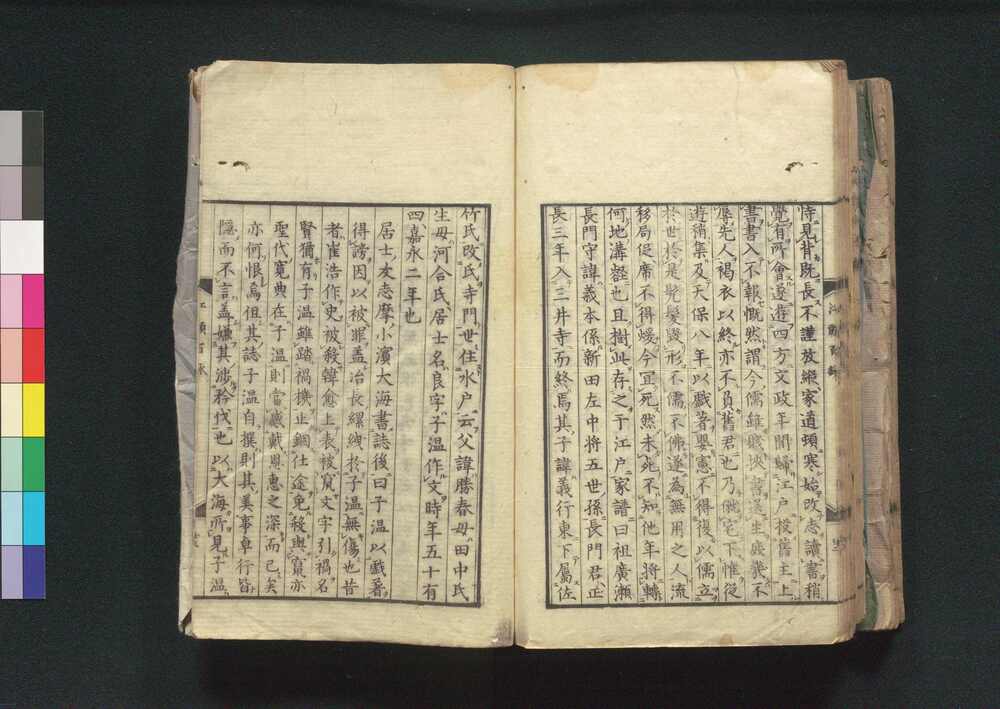 恃見背既長不謹放縱家道頓寒始改志讀書稍
覺有所會遂遊四方文政年間歸江戶投舊主上
書書入不報慨然謂今儒雖賤
辱先人褐衣以終亦不負舊君也乃僦宅下帷從
遊稍集及天保八年以戲著嬰憲不得復以儒立
於世於是髡髮毀形不儒不佛遂為無用之人流
移局促席不得煖今冝死然未死不知他年將轉
何地溝壑也且樹此存之于江戶家譜曰祖廣瀨
長門守諱義本係新田左中將五世孫長門君正
長三年入三井寺而終焉其子諱義行東下屬佐
竹氏改氏寺門世住水戶云父諱勝春母田中氏
生母河合氏居士名良字子溫作文時年五十有
四嘉永二年也
居士友志摩小濱大海書誌後曰子溫以戲著
得謗因以被罪蓋冶長縲絏於子溫無傷也昔
者崔浩作史被殺韓愈上表被竄文字引禍名
賢猶有子溫雖踏禍機止錮仕途免殺與竄亦
聖代寬典在子溫則當感戴恩惠之深而已矣
亦何恨焉但其誌子溫自撰則其美事卓行皆
隱而不言蓋嫌其涉矜伐也以大海所見子溫